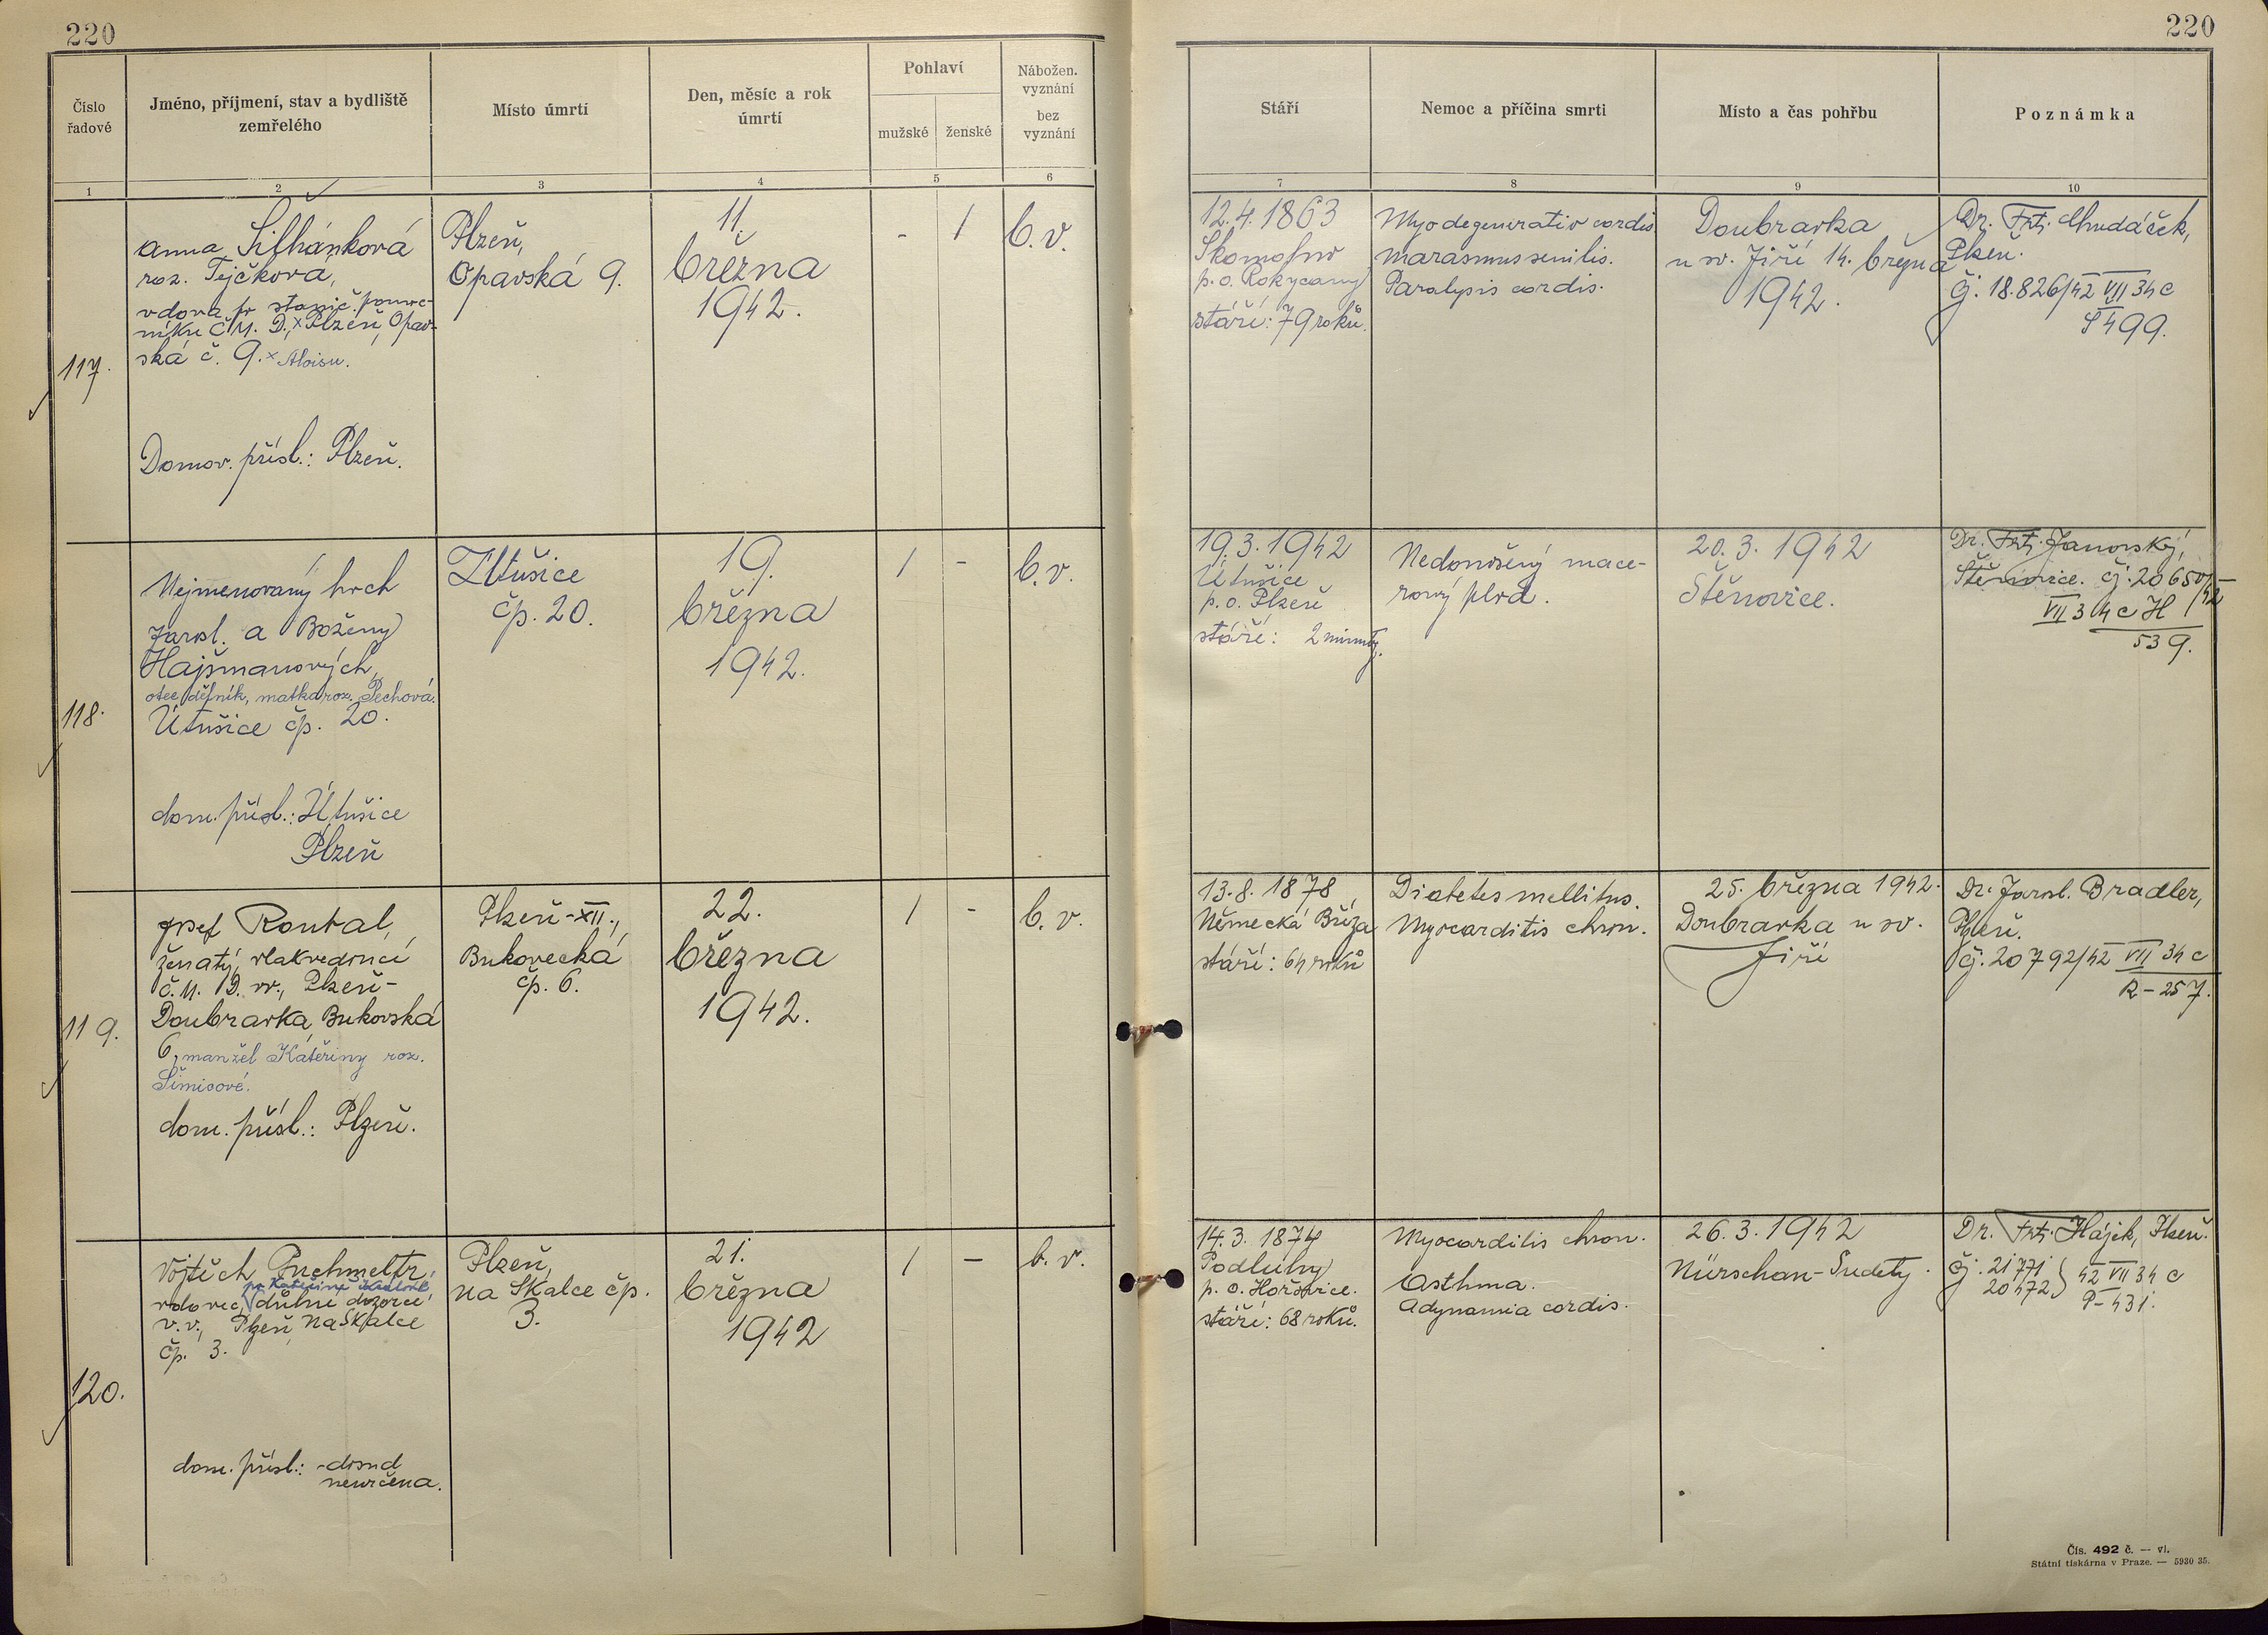 220
220
Číslo
řadové
Jméno, příjmení, stav a bydliště
zemřelého
Místo úmrtí
Den, měsíc a rok
úmrtí
Pohlaví
mužské
ženské
Nábožen.
vyznání
bez
vyznání
Stáří
Nemoc a příčina smrti
Místo a čas pohřbu
Poznámka
1
2
3
4
5
6
7
8
9
10
117.
Anna Silhánková
roz. Tejčková,
vdova po stanič. pomoc-
níku Č.M.D., x Plzeň, Opav-
ská č. 9. x Aloisu.
Domov. přísl.: Plzeň.
Plzeň,
Opavská 9.
11.
března
1942.
-
1
b.v.
12.4.1863
p.o. Rokycany
stáří: 79 roků.
Myodegeneratio cordis
marasmus senilis.
Paralysis cordis.
Doubravka
u sv. Jiří 14. března
1942.
Dr. Frt. Chudáček,
Plzeň.
čj. 18.826/42 VII 34c
S 499.
118.
Nejmenovaný hoch
Jarosl. a Boženy
Hajšmanových,
otec dělník, matka roz. Pechová.
Útušice čp. 20.
dom. přísl.: Útušice
Plzeň
Útušice
čp. 20.
19.
března
1942.
1
-
b.v.
19.3.1942
Útušice
p.o. Plzeň
stáří: 2 minuty.
Nedonošený mace-
rový plod.
20.3.1942
Štěnovice.
Dr. Frt. Janovský,
Štěnovice. čj. 20650/42
VII 34c H
539.
119.
Josef Roubal,
ženatý, vlakvedoucí
Č.M.D. vv., Plzeň-
Doubravka, Bukovská
6, manžel Kateřiny roz.
Šimicové.
dom. přísl.: Plzeň.
Plzeň-XII.,
Bukovecká
čp. 6.
22.
března
1942.
1
-
b.v.
13.8.1878
Německá Bříza
stáří: 64 roků
Diabetes mellitus.
Myocarditis chron.
25. března 1942.
Doubravka u sv.
Jiří
Dr. Jarosl. Bradler,
Plzeň.
čj. 20792/42 VII 34c
R-257.
120.
Vojtěch Puchmeltr,
po Kateřině
vdovec, důlní dozorce
v.v., Plzeň, Na Skalce
čp. 3.
dom. přísl.: -dosud
neurčena.
Plzeň,
na Skalce čp.
3.
21.
března
1942
1
-
b.v.
14.3.1874
Podluhy
p.o. Hořovice.
stáří: 68 roků.
Myocarditis chron.
Asthma.
Adynamia cordis.
26.3.1942
Nürschan-Sudety.
Dr. Frt. Hájek, Plzeň.
čj. 21771
20472 } 42 VII 34c
P-431.
Čís. 492 č. — vl.
Státní tiskárna v Praze. — 5930 35.